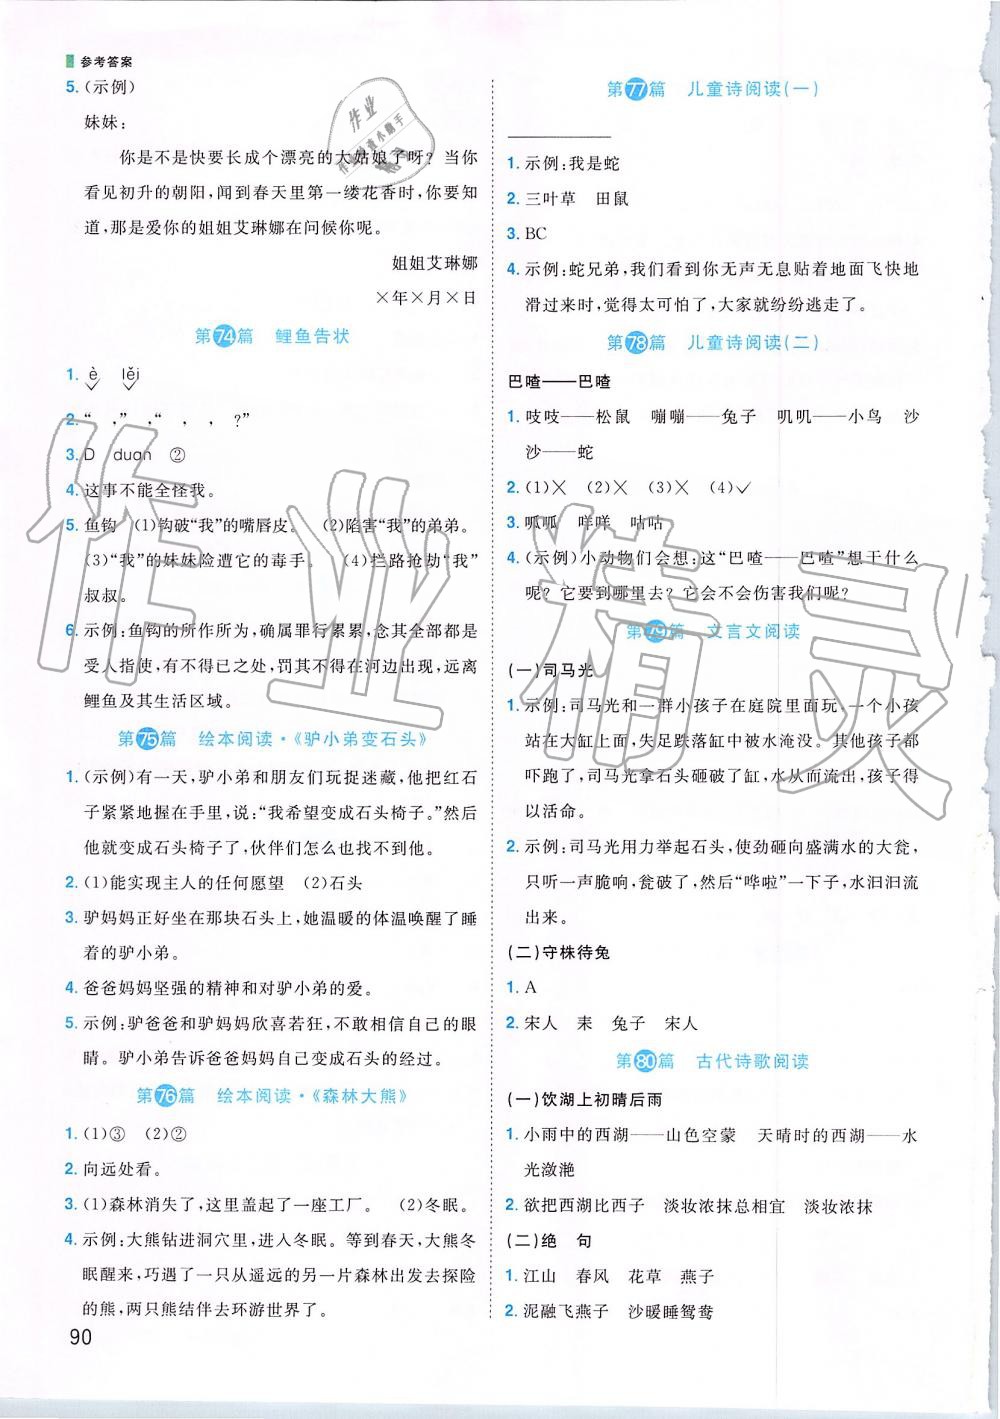 参考答案
5.(示例)
妹妹:
你是不是快要长成个漂亮的大姑娘了呀?当你
看见初升的朝阳,闻到春天里第一缕花香时,你要知
道,那是爱你的姐姐艾琳娜在问候你呢。
姐姐艾琳娜
×年×月×日
第74篇 鲤鱼告状
1. è lěi
2. “ ,”“ , , ?”
3. D duan ②
4. 这事不能全怪我。
5. 鱼钩 (1)钩破“我”的嘴唇皮。 (2)陷害“我”的弟弟。
(3)“我”的妹妹险遭它的毒手。 (4)拦路抢劫“我”
叔叔。
6. 示例:鱼钩的所作所为,确属罪行累累,念其全部都是
受人指使,有不得已之处,罚其不得在河边出现,远离
鲤鱼及其生活区域。
第75篇 绘本阅读·《驴小弟变石头》
1. (示例)有一天,驴小弟和朋友们玩捉迷藏,他把红石
子紧紧地握在手里,说:“我希望变成石头椅子。”然后
他就变成石头椅子了,伙伴们怎么也找不到他。
2. (1)能实现主人的任何愿望 (2)石头
3. 驴妈妈正好坐在那块石头上,她温暖的体温唤醒了睡
着的驴小弟。
4. 爸爸妈妈坚强的精神和对驴小弟的爱。
5. 示例:驴爸爸和驴妈妈欣喜若狂,不敢相信自己的眼
睛。驴小弟告诉爸爸妈妈自己变成石头的经过。
第76篇 绘本阅读·《森林大熊》
1. (1)③ (2)②
2. 向远处看。
3. (1)森林消失了,这里盖起了一座工厂。 (2)冬眠。
4. 示例:大熊钻进洞穴里,进入冬眠。等到春天,大熊冬
眠醒来,巧遇了一只从遥远的另一片森林出发去探险
的熊,两只熊结伴去环游世界了。
90
第77篇 儿童诗阅读(一)
1. 示例:我是蛇
2. 三叶草 田鼠
3. BC
4. 示例:蛇兄弟,我们看到你无声无息贴着地面飞快地
滑过来时,觉得太可怕了,大家就纷纷逃走了。
第78篇 儿童诗阅读(二)
巴喳——巴喳
1. 吱吱——松鼠 嘣嘣——兔子 叽叽——小鸟 沙
沙——蛇
2. (1)× (2)× (3)× (4)✓
3. 呱呱 咩咩 咕咕
4. (示例)小动物们会想:这“巴喳——巴喳”想干什么
呢?它要到哪里去?它会不会伤害我们呢?
第79篇 文言文阅读
(一)司马光
1. 示例:司马光和一群小孩子在庭院里面玩,一个小孩
站在大缸上面,失足跌落缸中被水淹没。其他孩子都
吓跑了,司马光拿石头砸破了缸,水从而流出,孩子得
以活命。
2. 示例:司马光用力举起石头,使劲砸向盛满水的大瓮,
只听一声脆响,瓮破了,然后“哗啦”一下子,水汩汩流
出来。
(二)守株待兔
1. A
2. 宋人 耒 兔子 宋人
第80篇 古代诗歌阅读
(一)饮湖上初晴后雨
1. 小雨中的西湖——山色空蒙 天晴时的西湖——水
光潋滟
2. 欲把西湖比西子 淡妆浓抹总相宜 淡妆浓抹
(二)绝 句
1. 江山 春风 花草 燕子
2. 泥融飞燕子 沙暖睡鸳鸯
作业精灵
作业